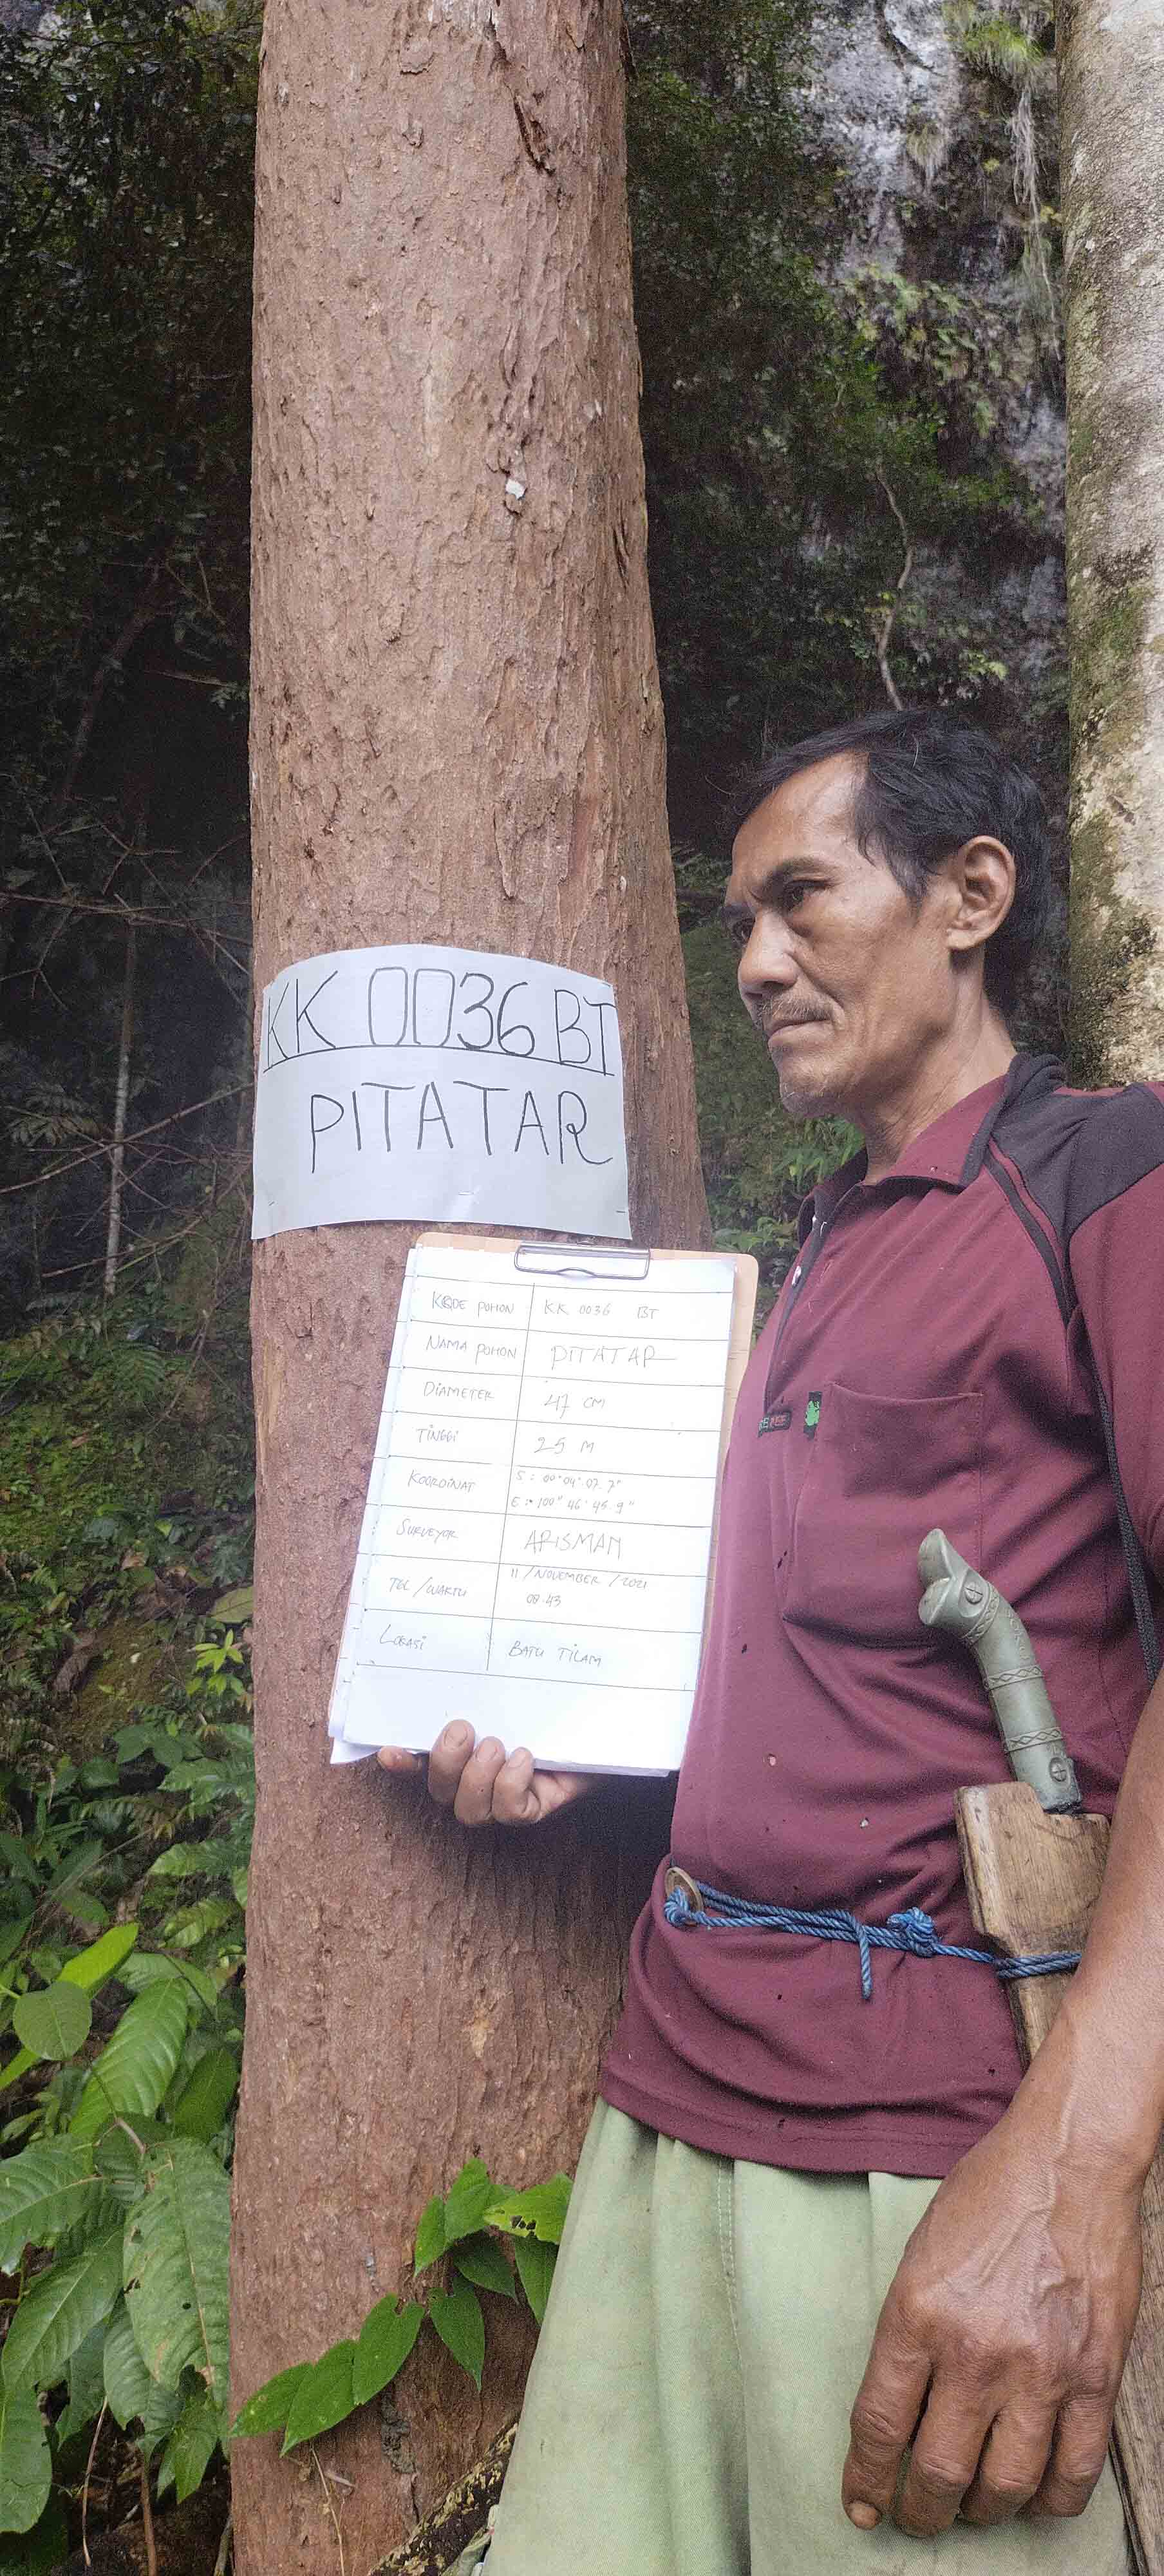 KK 0036 BT
PITATAR
KODE POHON : KK 0036 BT
NAMA POHON PITATAR
DIAMETER 47 CM
TINGGI 25 M
KOORDINAT S : 00° 04' 07.7"
E : 100° 46' 45.9"
SURVEYOR ARISMAN
TGL / WAKTU 11 / NOVEMBER / 2021
08.43
LOKASI BATU TILAM